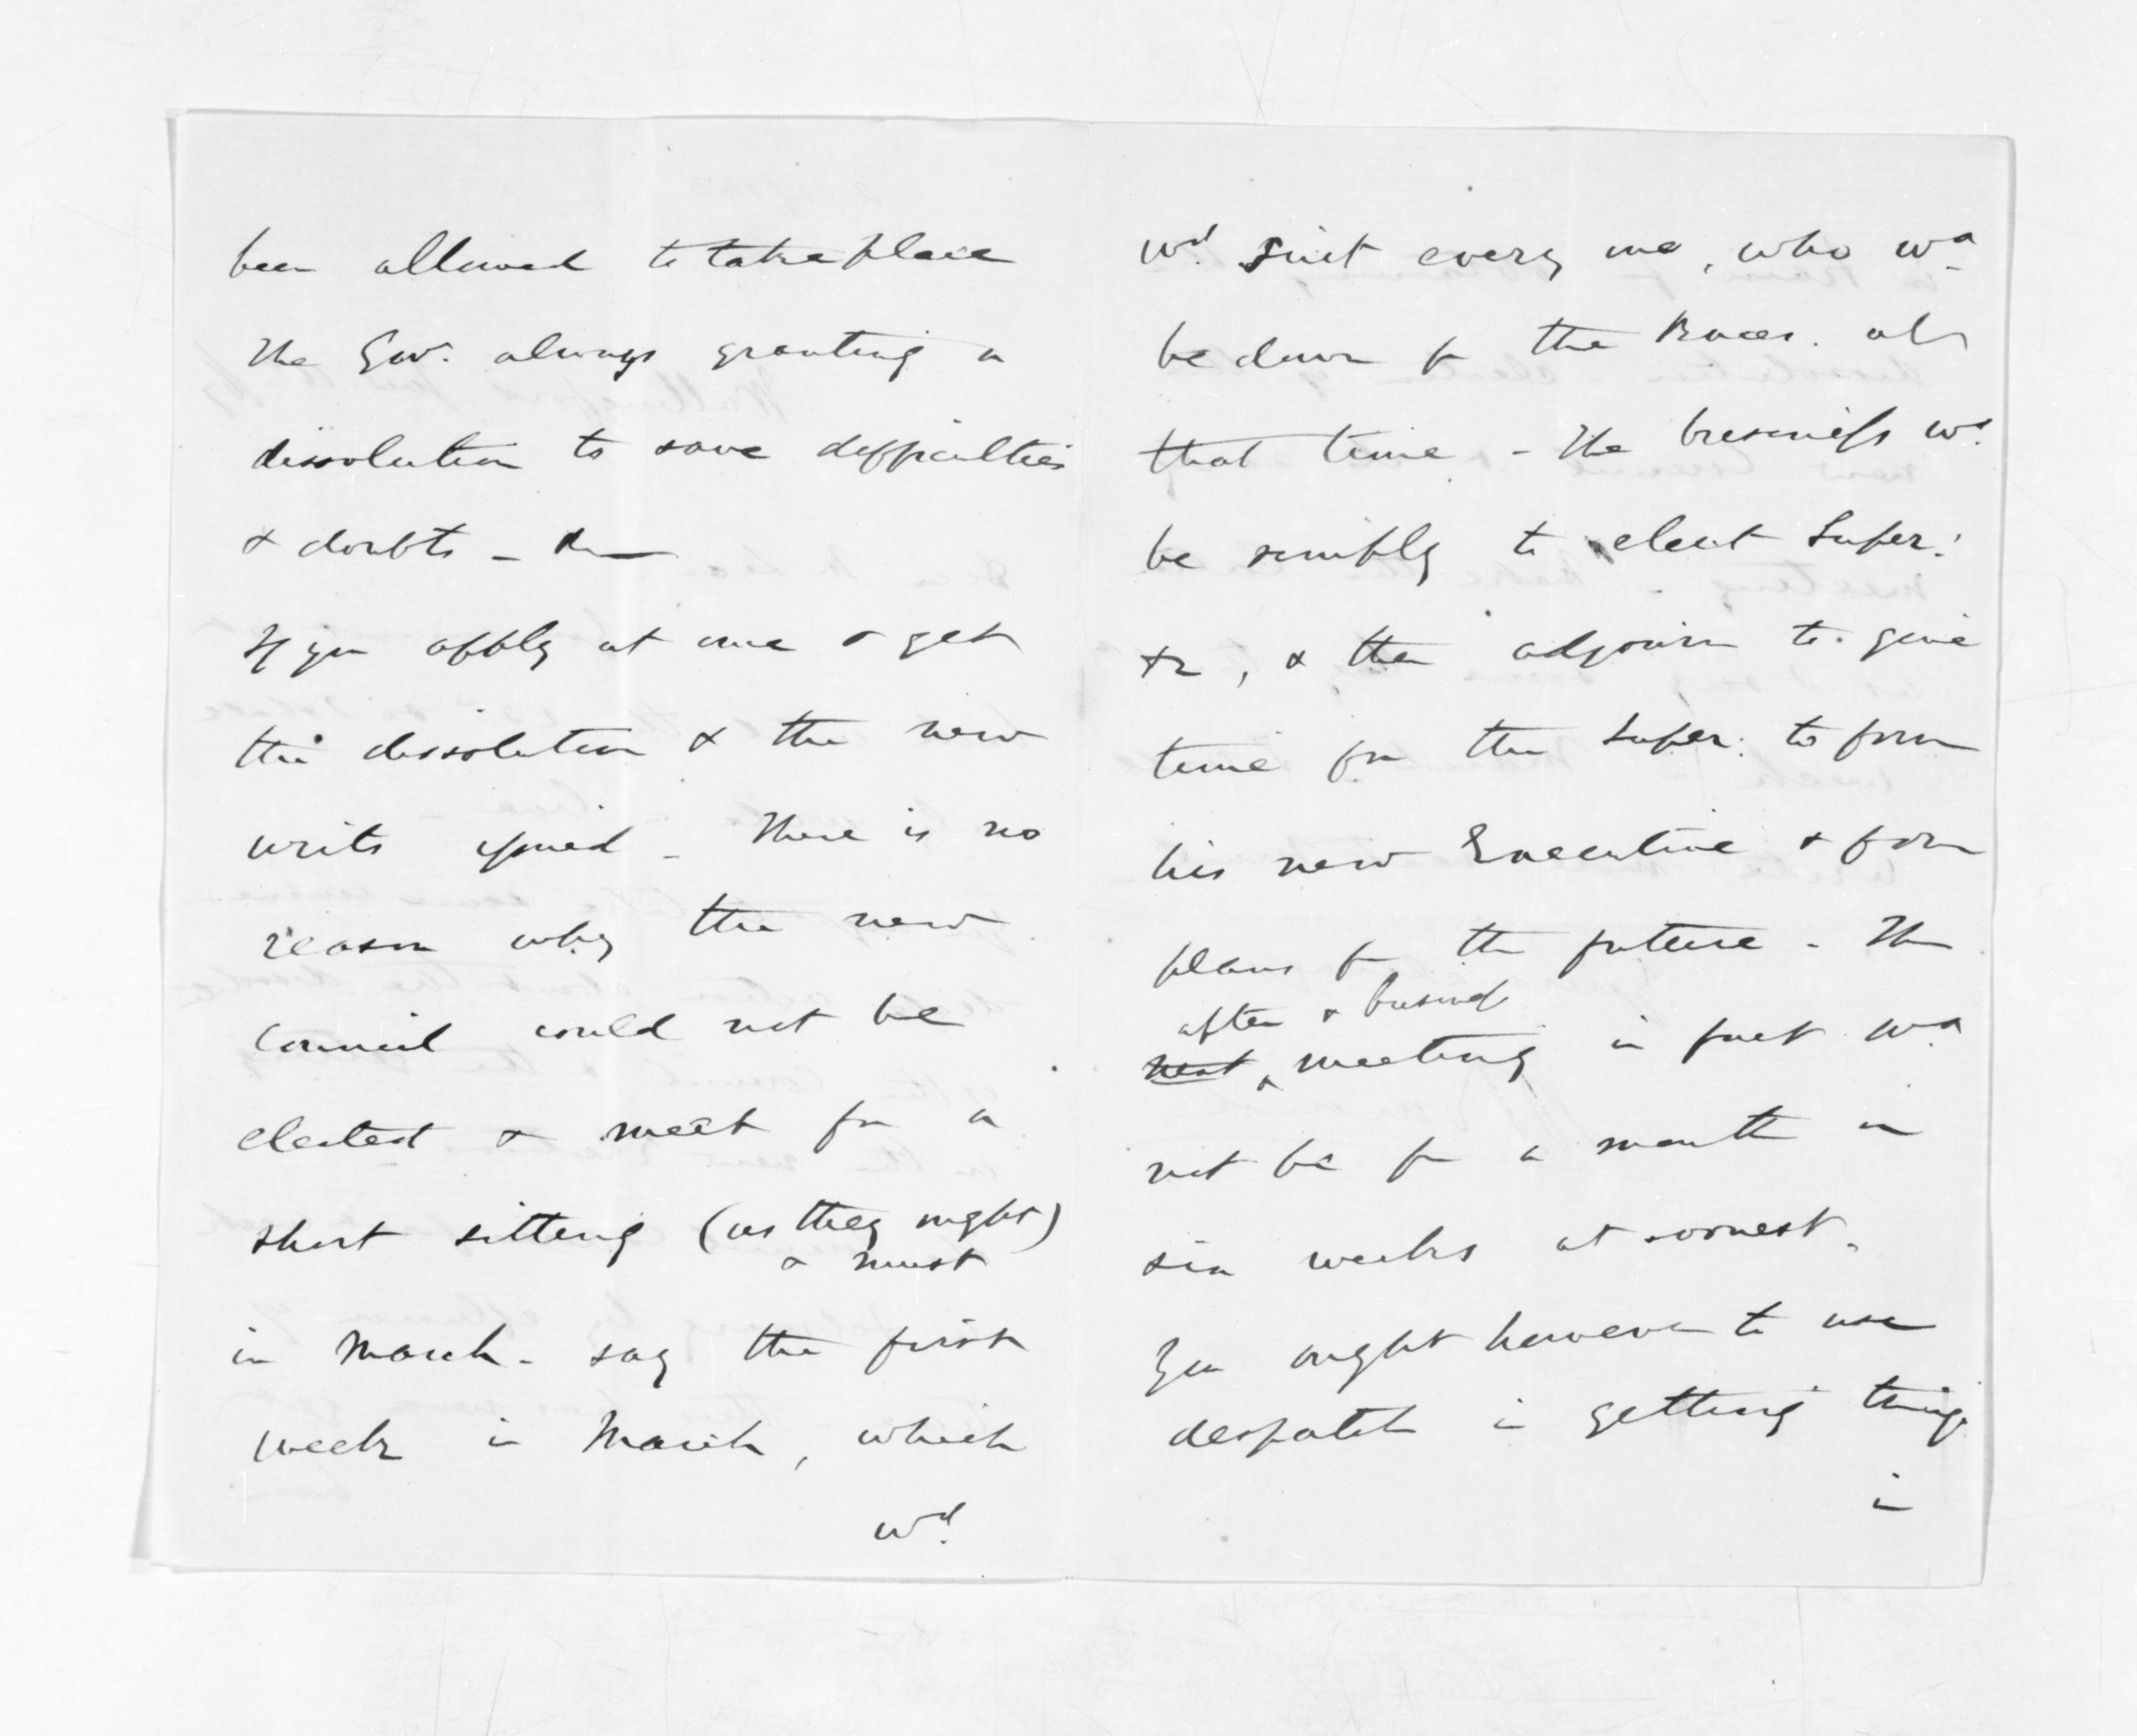 been allowed to take place
The Gov. always granting a
dissolution to save difficulties
& doubts –
If you apply at once & get
the dissolution & the new
writs issued – There is no
reason why the new
Council could not be
elected & meet for a
short sitting (as they ought)
& must
in March – say the first
week in March, which
wd.
wd. suit every one, who wd.
be down for the Races. at
that time – The business wd.
be simply to elect Super:
&c, & then adjourn to give
time for the Super: to form
his new Executive & form
plans for the future – The
after & business
next meeting in fact wd.
not be for a month or
six weeks at soonest.
You ought however to use
despatch in getting things
in